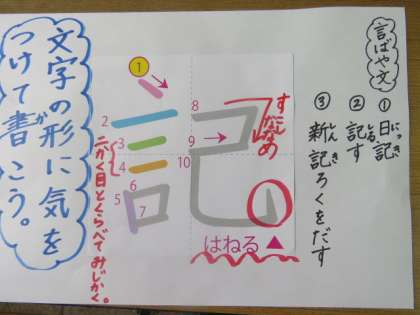 言ばや文
① 日記
にっき
② 記す
しる
③ 新記ろくをだす
しん き
①
2
3
4
5
6
7
8
9
10
記
すこしななめ
はねる
二かく目とくらべてみじかく。
文字の形に気を
つけて書こう。
か